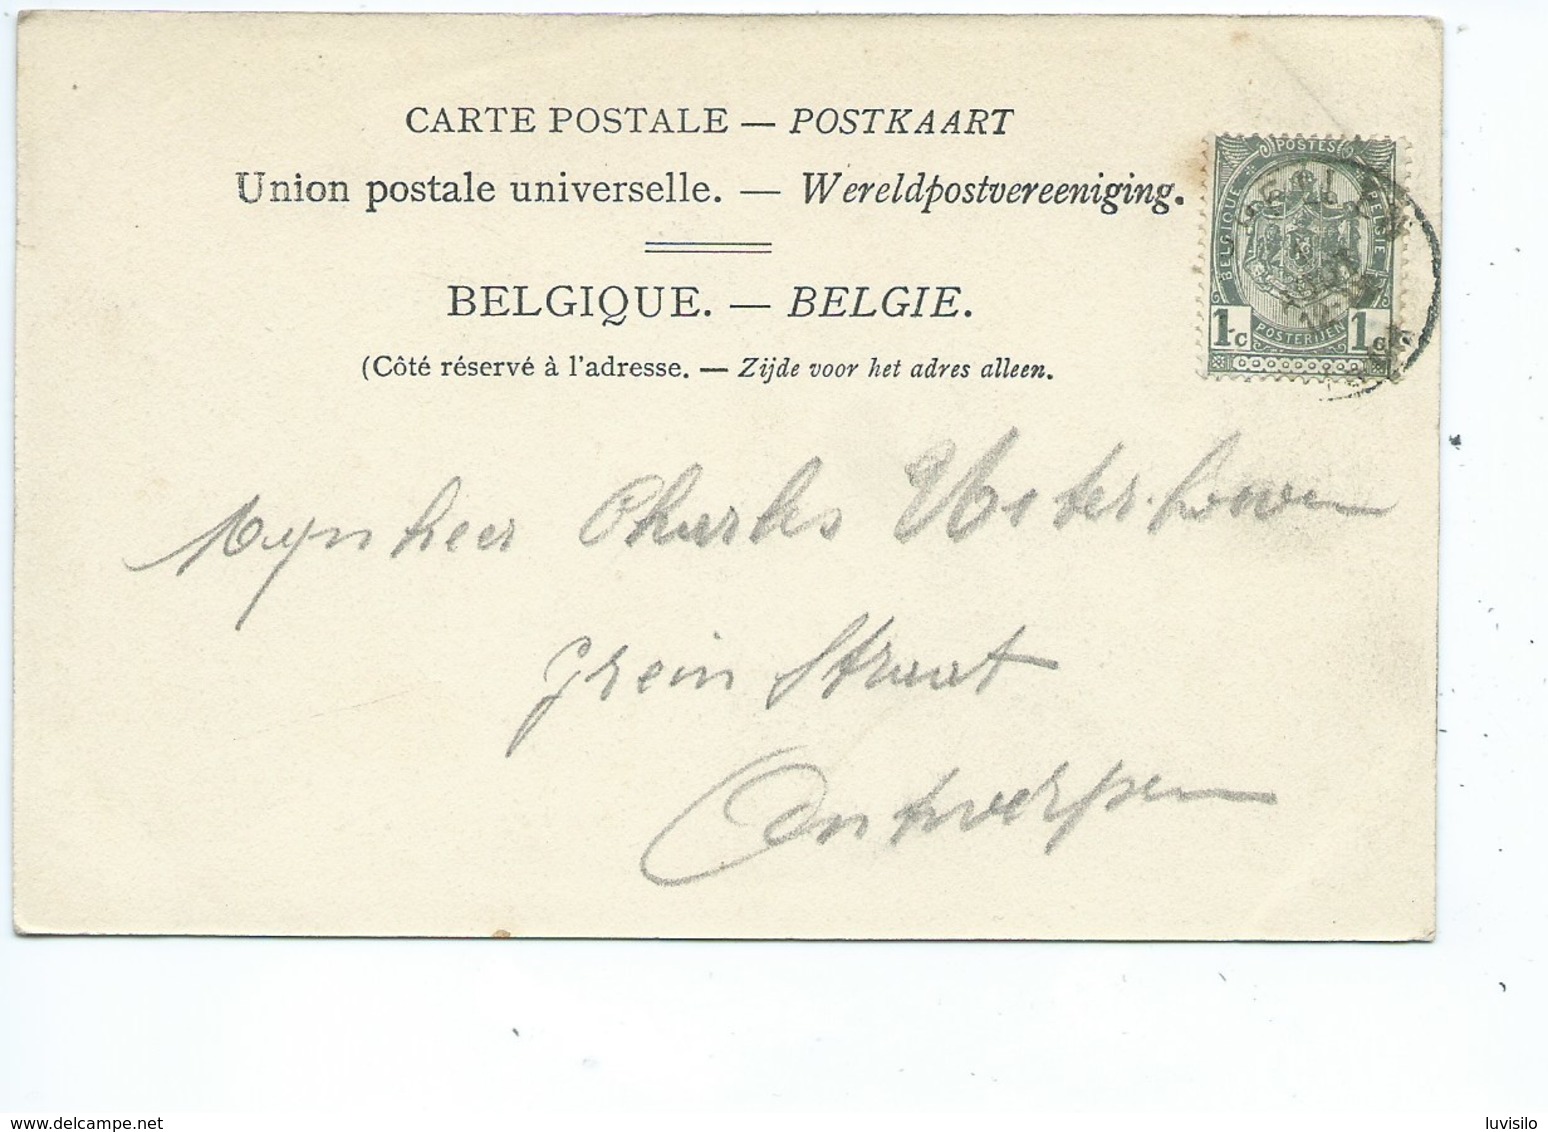 CARTE POSTALE — POSTKAART
Union postale universelle. — Wereldpostvereeniging.
BELGIQUE. — BELGIE.
(Côté réservé à l'adresse. — Zijde voor het adres alleen.
POSTES
BELGIQUE BELGIE
1c POSTERIJEN 1c
Mynheer Charles
Grein Straat
Antwerpen
luvisilo